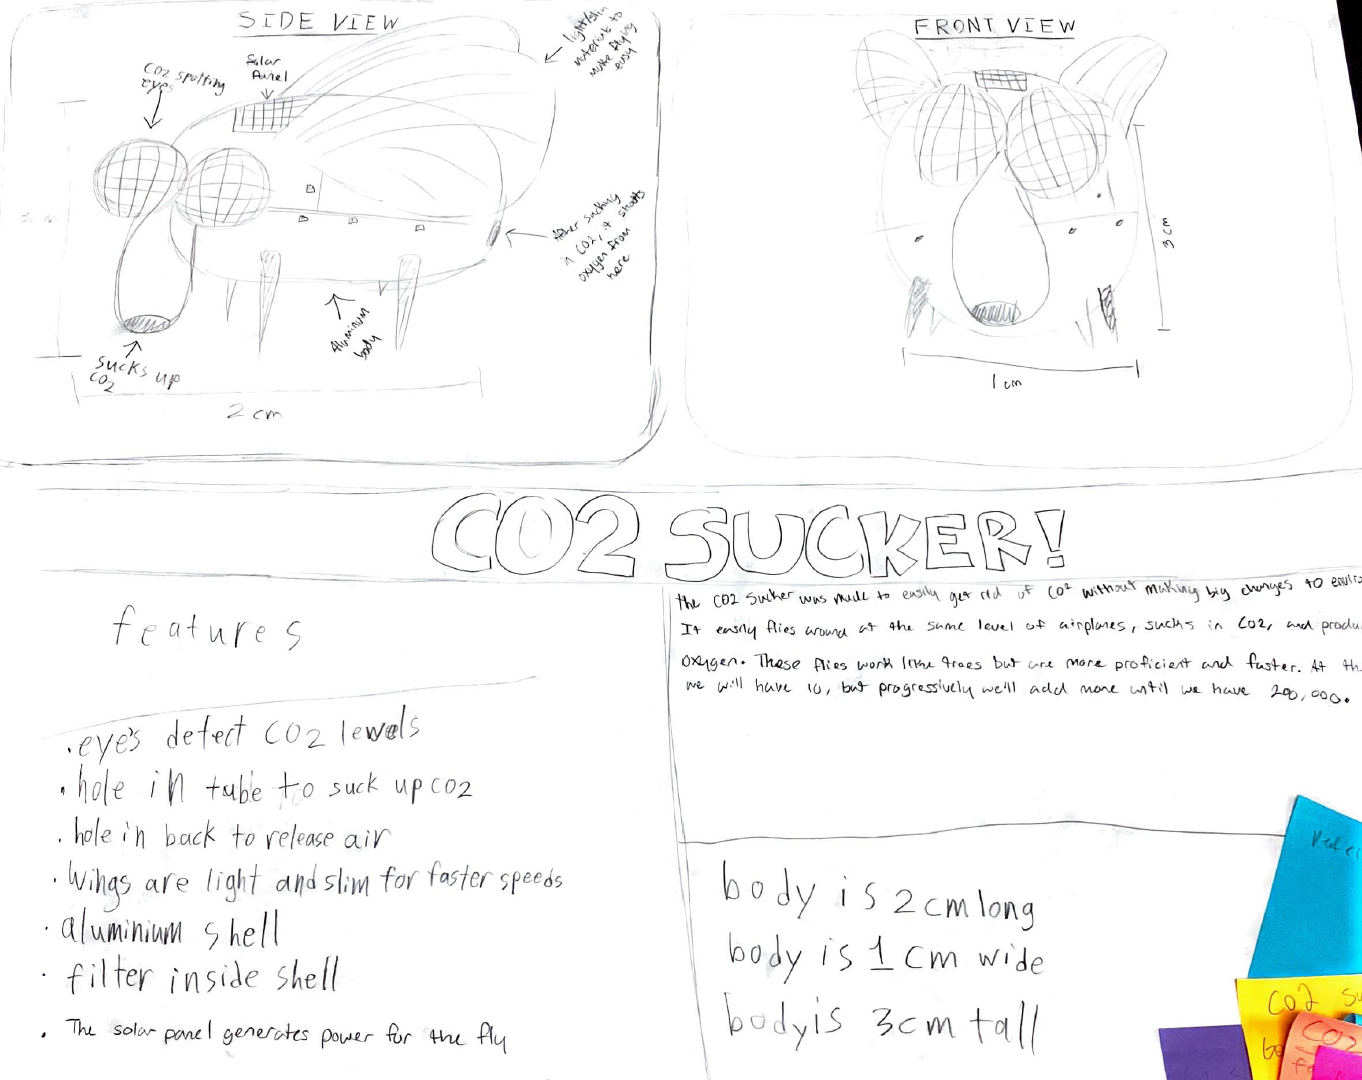 SIDE VIEW
CO2 spotting
eyes
Solar
Panel
light/slim
material to
make flying
easy
After sucking
in CO2, it shoots
oxygen from
here
Aluminum
body
sucks up
CO2
2 cm
FRONT VIEW
3 cm
1 cm
CO2 SUCKER!
features
. eye's detect CO2 levels
. hole in tube to suck up CO2
. hole in back to release air
. Wings are light and slim for faster speeds
. aluminium shell
. filter inside shell
. The solar panel generates power for the fly
the CO2 Sucker was made to easily get rid of CO2 without making big changes to enviro
It easily flies around at the same level of airplanes, sucks in CO2, and produ
oxygen. These flies work like trees but are more proficient and faster. At th
we will have 10, but progressively we'll add more until we have 200,000.
body is 2cm long
body is 1 cm wide
body is 3cm tall
CO2 Su
CO2